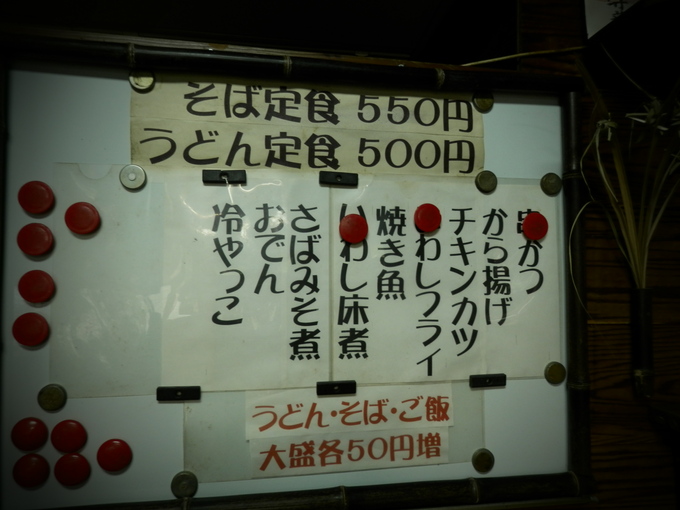 そば定食 550円
うどん定食 500円
串かつ
から揚げ
チキンカツ
いわしフライ
焼き魚
いわし床煮
さばみそ煮
おでん
冷やっこ
うどん・そば・ご飯
大盛各50円増